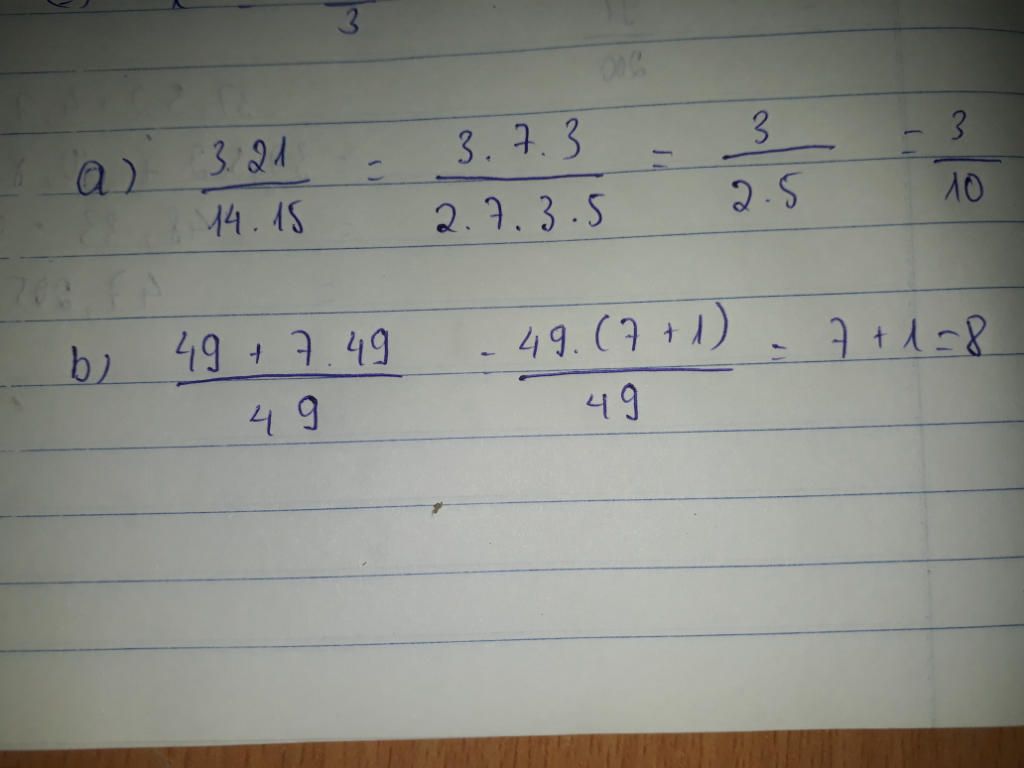 3
a) 3.21 / 14.15 = 3.7.3 / 2.7.3.5 = 3 / 2.5 = 3 / 10
b) 49 + 7.49 / 49 = 49.(7+1) / 49 = 7+1=8